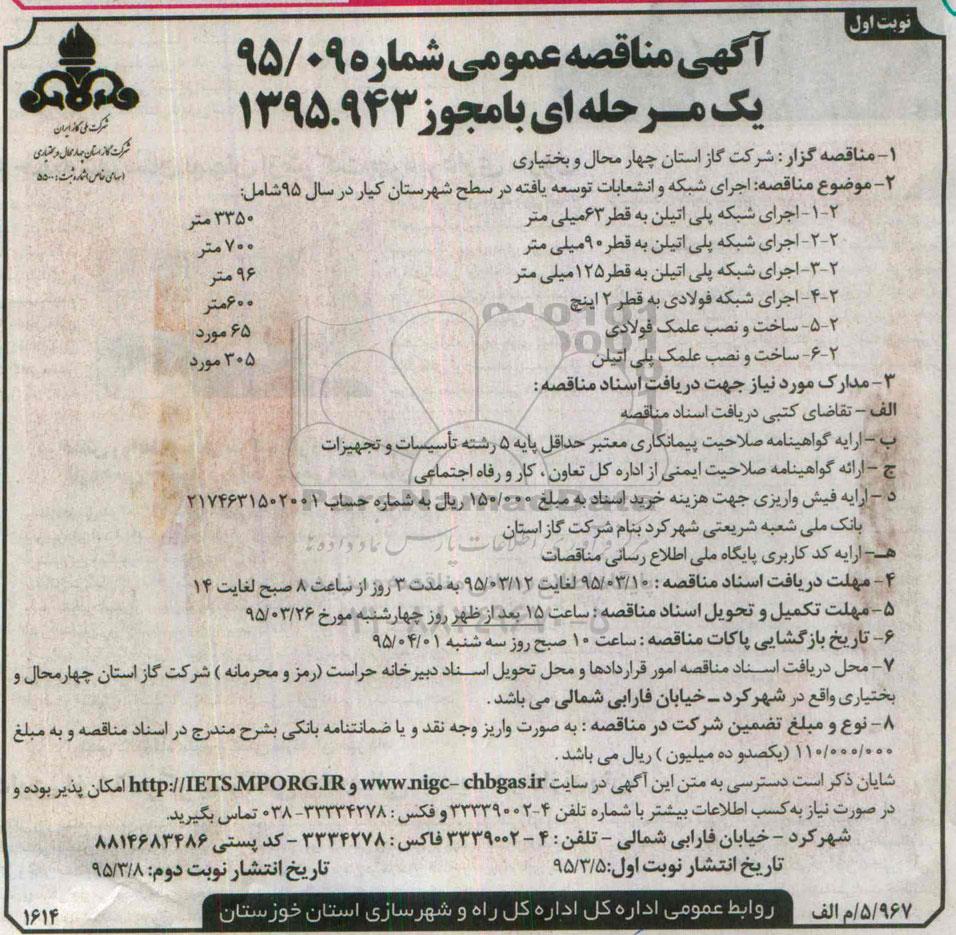 نوبت اول
آگهی مناقصه عمومی شماره ۹۵/۰۹
یک مرحله ای با مجوز ۱۳۹۵.۹۴۳
شرکت ملی گاز ایران
شرکت گاز استان چهارمحال و بختیاری
(سهامی خاص) شماره ثبت: ۵۵۰۰
۱- مناقصه گزار : شرکت گاز استان چهار محال و بختیاری
۲- موضوع مناقصه: اجرای شبکه و انشعابات توسعه یافته در سطح شهرستان کیار در سال ۹۵شامل:
۲-۱- اجرای شبکه پلی اتیلن به قطر ۶۳میلی متر ۳۳۵۰ متر
۲-۲- اجرای شبکه پلی اتیلن به قطر ۹۰میلی متر ۷۰۰ متر
۲-۳- اجرای شبکه پلی اتیلن به قطر ۱۲۵میلی متر ۹۶ متر
۲-۴- اجرای شبکه فولادی به قطر ۲ اینچ ۶۰۰متر
۲-۵- ساخت و نصب علمک فولادی ۶۵ مورد
۲-۶- ساخت و نصب علمک پلی اتیلن ۳۰۵ مورد
۳- مدارک مورد نیاز جهت دریافت اسناد مناقصه :
الف – تقاضای کتبی دریافت اسناد مناقصه
ب- ارایه گواهینامه صلاحیت پیمانکاری معتبر حداقل پایه ۵ رشته تأسیسات و تجهیزات
ج – ارائه گواهینامه صلاحیت ایمنی از اداره کل تعاون ، کار و رفاه اجتماعی
د – ارایه فیش واریزی جهت هزینه خرید اسناد به مبلغ ۱۵۰/۰۰۰ ریال به شماره حساب ۲۱۷۴۶۳۱۵۰۲۰۰۱
بانک ملی شعبه شریعتی شهرکرد بنام شرکت گاز استان
هـ- ارایه کد کاربری پایگاه ملی اطلاع رسانی مناقصات
۴- مهلت دریافت اسناد مناقصه : ۹۵/۰۳/۱۰ لغایت ۹۵/۰۳/۱۲ به مدت ۳ روز از ساعت ۸ صبح لغایت ۱۴
۵- مهلت تکمیل و تحویل اسناد مناقصه : ساعت ۱۵ بعد از ظهر روز چهارشنبه مورخ ۹۵/۰۳/۲۶
۶- تاریخ بازگشایی پاکات مناقصه : ساعت ۱۰ صبح روز سه شنبه ۹۵/۰۴/۰۱
۷- محل دریافت اسناد مناقصه امور قراردادها و محل تحویل اسناد دبیرخانه حراست (رمز و محرمانه ) شرکت گاز استان چهارمحال و
بختیاری واقع در شهرکرد – خیابان فارابی شمالی می باشد .
۸- نوع و مبلغ تضمین شرکت در مناقصه : به صورت واریز وجه نقد و یا ضمانتنامه بانکی بشرح مندرج در اسناد مناقصه و به مبلغ
۱۱۰/۰۰۰/۰۰۰ (یکصدو ده میلیون ) ریال می باشد .
شایان ذکر است دسترسی به متن این آگهی در سایت www.nigc- chbgas.ir و http://IETS.MPORG.IR امکان پذیر بوده و
در صورت نیاز به کسب اطلاعات بیشتر با شماره تلفن ۴-۳۳۳۳۹۰۰۲ و فکس : ۳۳۳۳۴۲۷۸-۰۳۸ تماس بگیرید.
شهرکرد – خیابان فارابی شمالی – تلفن : ۴ – ۳۳۳۹۰۰۲ فاکس : ۳۳۳۴۲۷۸ – کد پستی ۸۸۱۴۶۸۳۴۸۶
تاریخ انتشار نوبت اول: ۹۵/۳/۵ تاریخ انتشار نوبت دوم: ۹۵/۳/۸
۵/۹۶۷/م الف روابط عمومی اداره کل اداره کل راه و شهرسازی استان خوزستان ۱۶۱۴